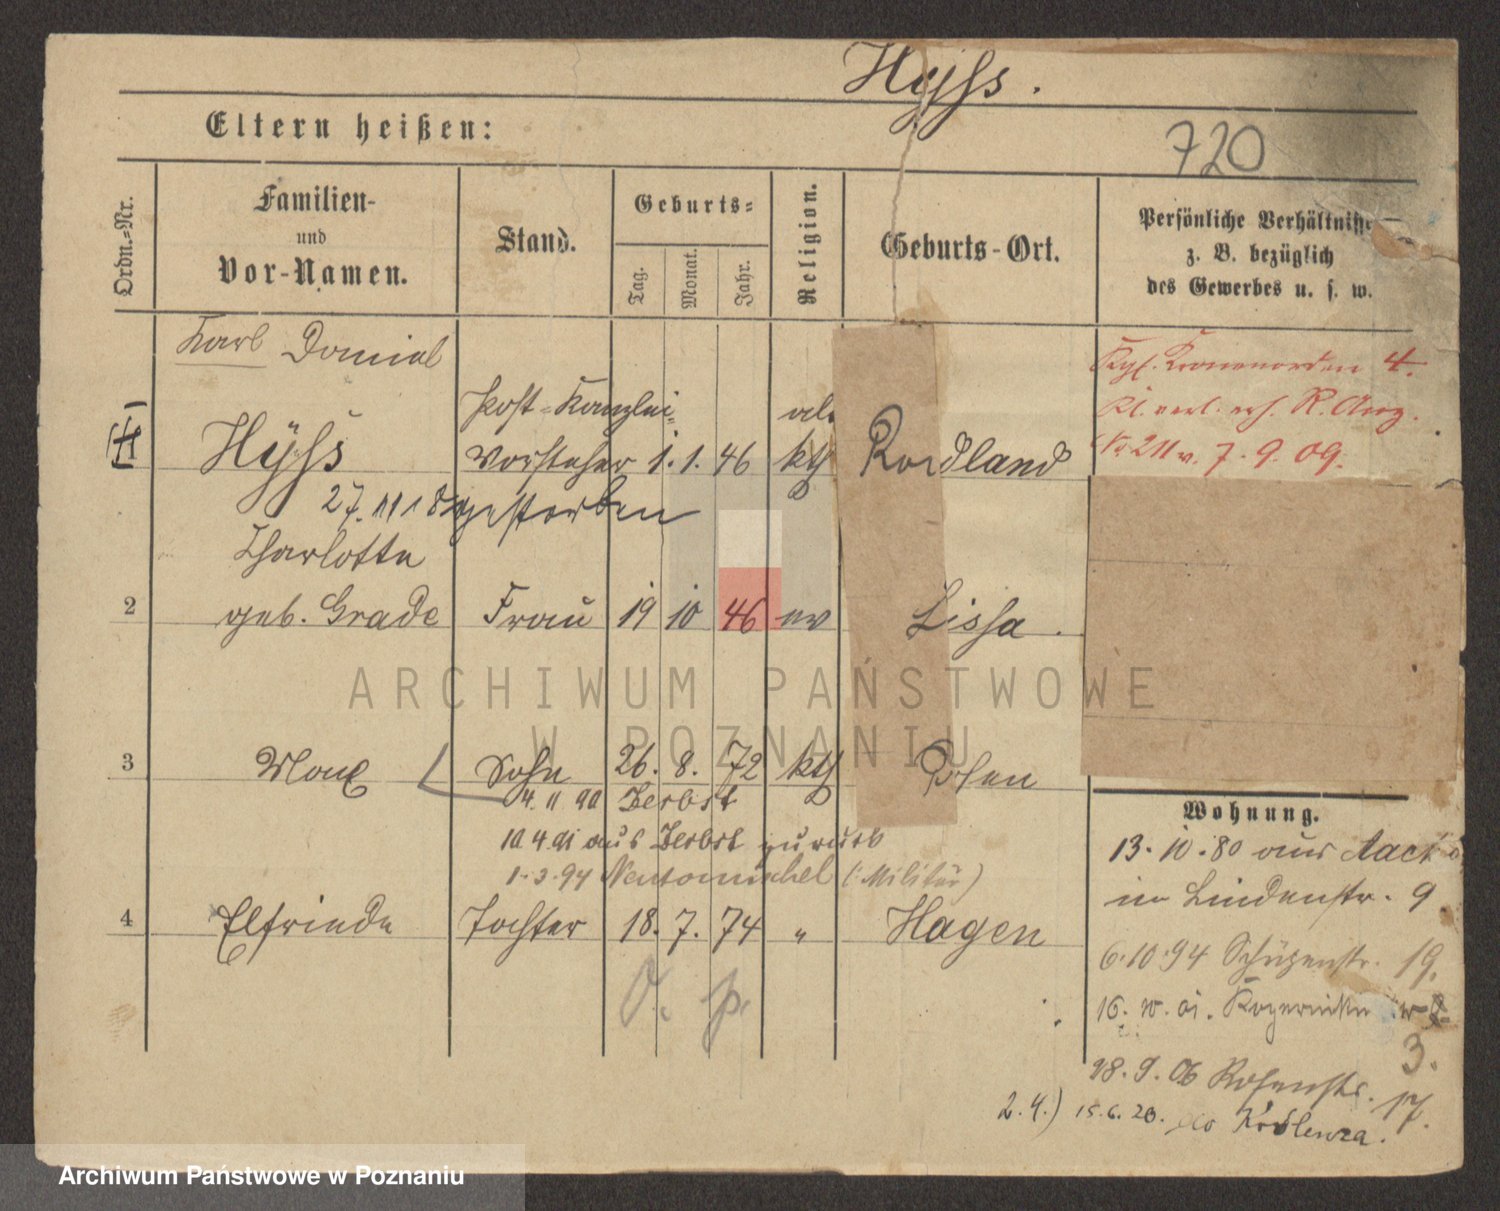 Hyss.
720
Eltern heißen:
Ordn.-Nr.
Familien-
und
Vor-Namen.
Stand.
Geburts-
Tag.
Monat.
Jahr.
Religion.
Geburts-Ort.
Persönliche Verhältnisse
z. B. bezüglich
des Gewerbes u. s. w.
Karl Daniel
Hÿss
Post-Kanzlei-
vorsteher 1. 1. 46 kth Roidland
27. 11 18 gestorben
Kgl. Kronenorden 4.
Kl. verl. R. Anz.
No 211 v. 7. 9. 09.
Charlotte
2 geb. Grade Frau 19 10 46 ev Lissa.
3 Max Sohn 26. 8. 72 kth Posen
4. 11 90 Zerbst
10 4 91 aus Zerbst zurück
1. 3. 94 Neutomischel (Militär)
4 Elfriede Tochter 18. 7. 74 " Hagen
Wohnung.
13. 10. 80 aus
in Lindenstr. 9.
6. 10. 94 Schützenstr. 19.
16. 10. 01.
3.
28. 9. 06 Rosenstr. 17.
2. 4.) 15. 6. 20. do Królewca.
ARCHIWUM PAŃSTWOWE
W POZNANIU
Archiwum Państwowe w Poznaniu